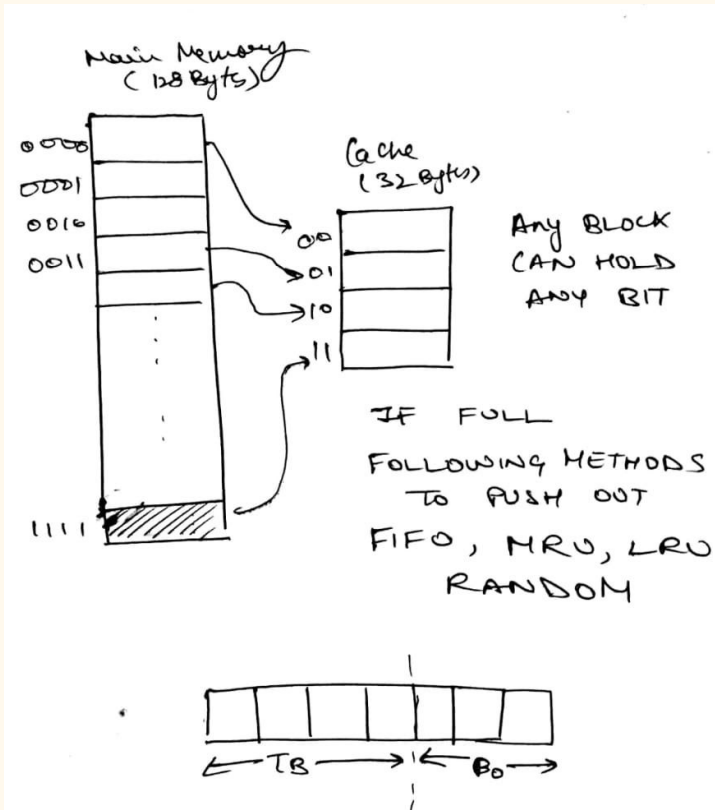 Main Memory
(128 Bytes)
0000
0001
0010
0011
1111
Cache
(32 Bytes)
00
01
10
11
Any BLOCK
CAN HOLD
ANY BIT
IF FULL
FOLLOWING METHODS
TO PUSH OUT
FIFO, MRU, LRU
RANDOM
TB
BO